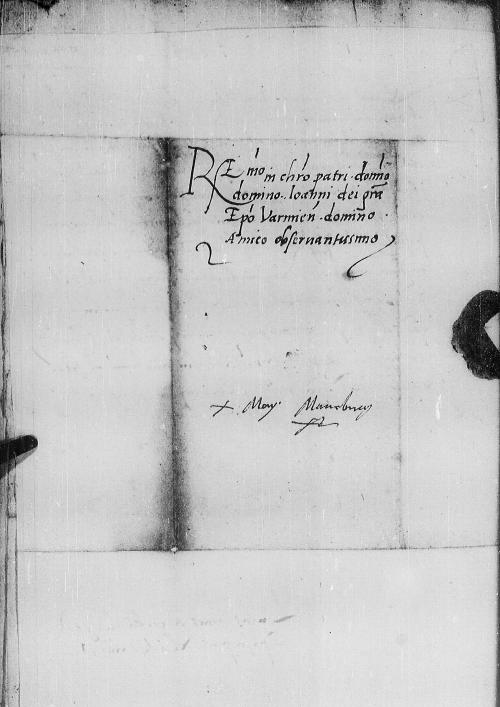 REmo in chro patri domino
domino Ioanni dei gra
Epo Varmien domino
Amico observantissimo
+ May